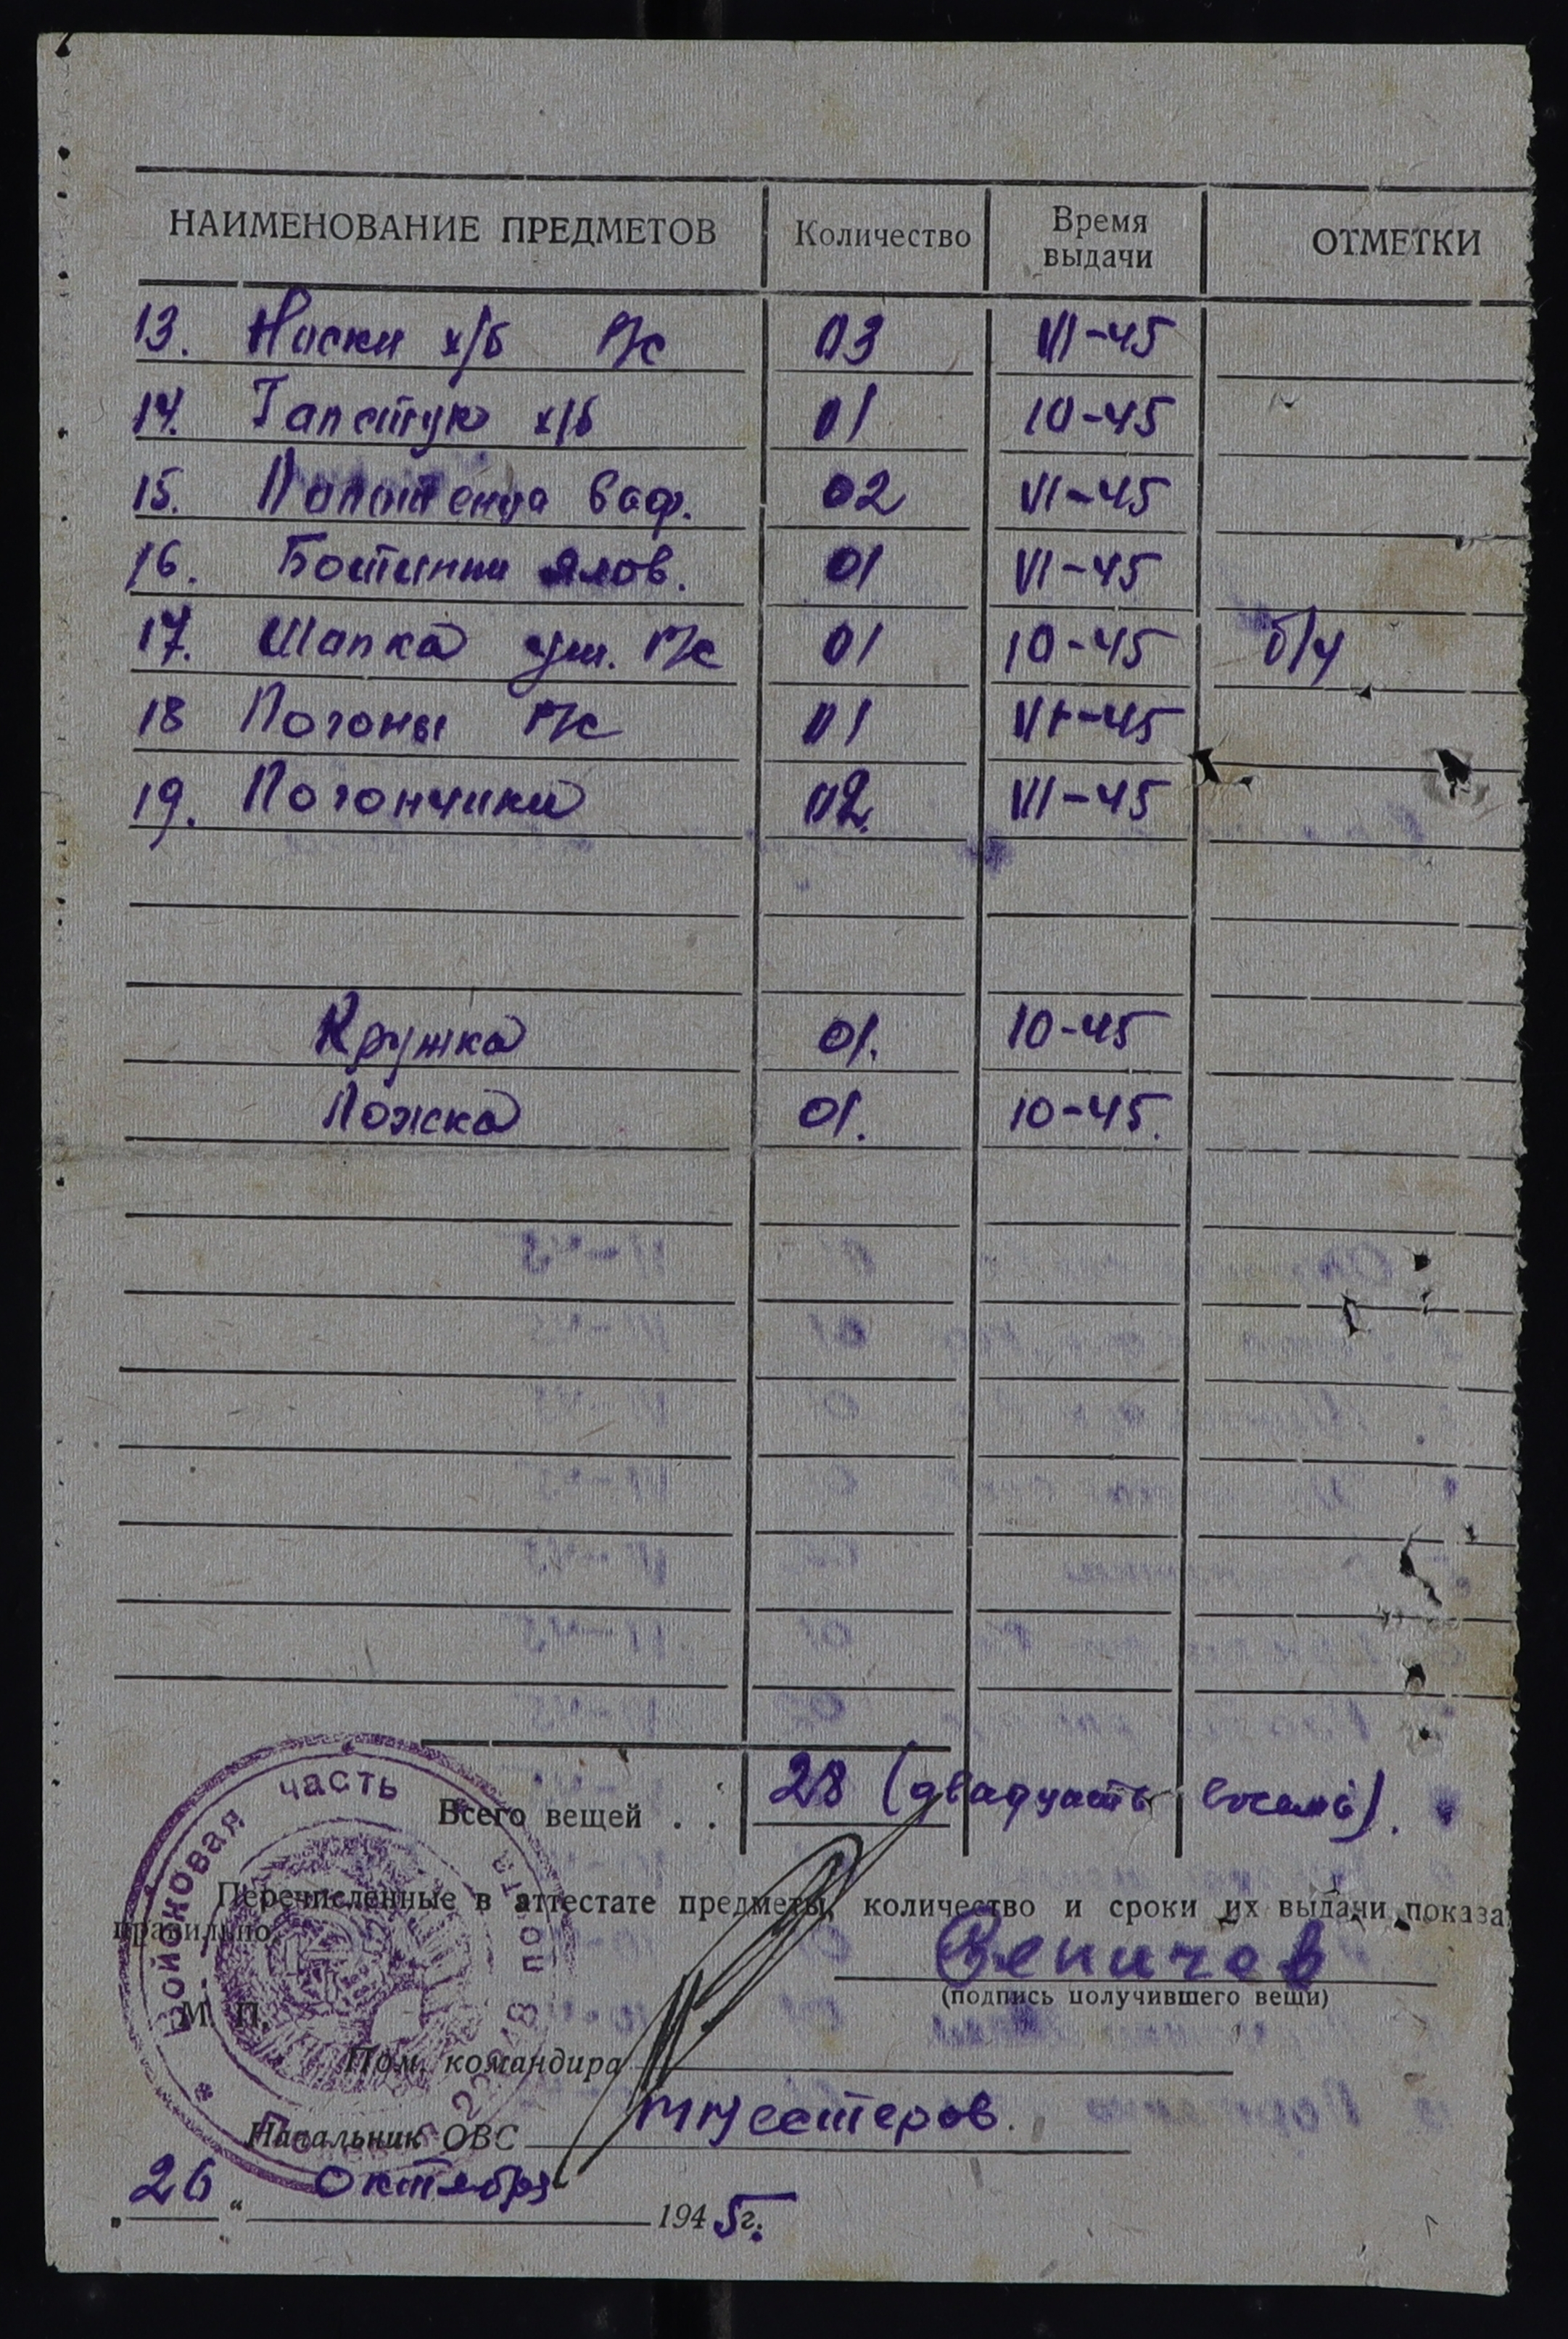 НАИМЕНОВАНИЕ ПРЕДМЕТОВ Количество Время выдачи ОТМЕТКИ
13. Носки х/б Р/с 03 VI-45
14. Галстук х/б 01 10-45
15. Полотенца ваф. 02 VI-45
16. Ботинки ялов. 01 VI-45
17. Шапка уш. Р/с 01 10-45 б/у
18 Погоны Р/с 01 VI-45
19. Погончики 02. VI-45
Кружка 01. 10-45
Ложка 01. 10-45.
Всего вещей . . 28 (двадцать восемь).
Перечисленные в аттестате предметы, количество и сроки их выдачи показа
правильно
Веничев
(подпись получившего вещи)
М. П.
Пом. командира
Начальник ОВС Нестеров.
„26“ октября 1945 г.
войсковая часть
полевая почта